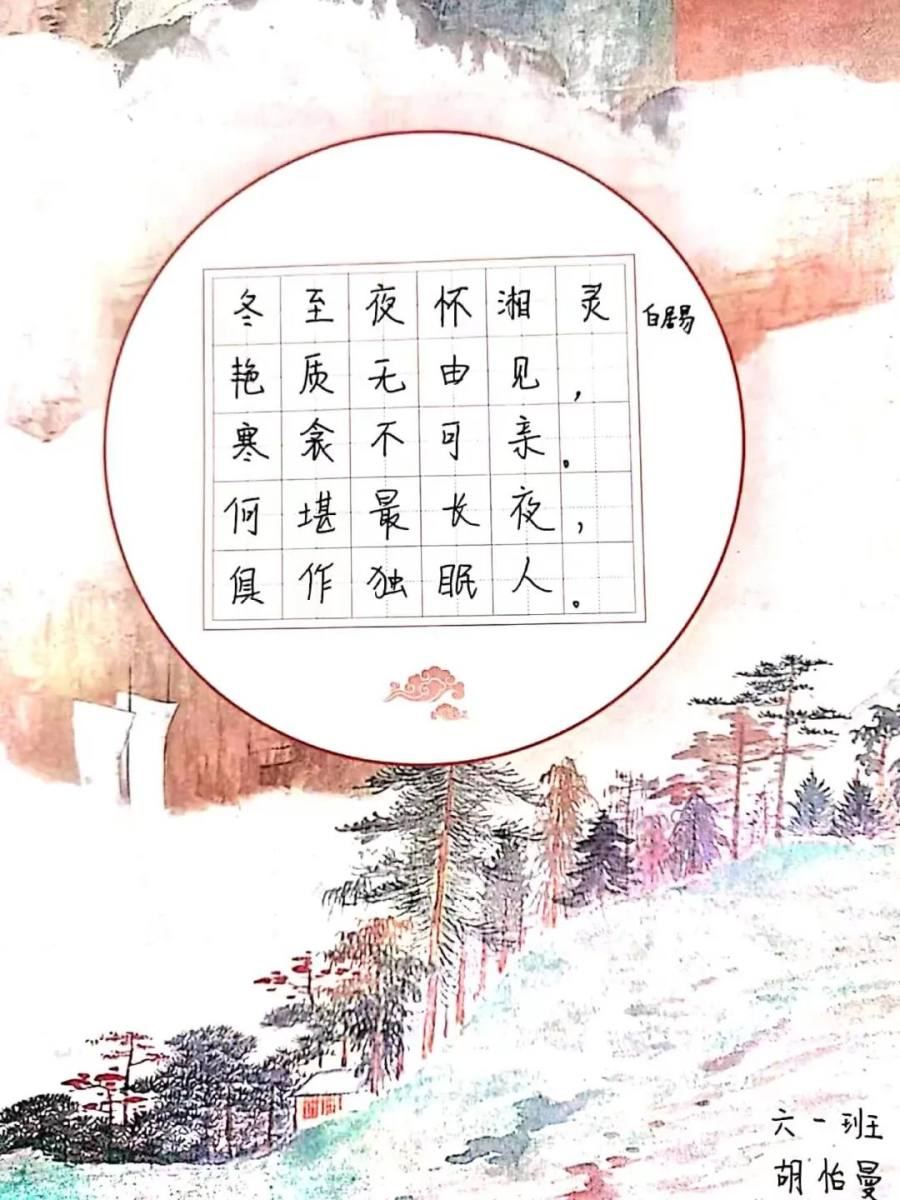 冬至夜怀湘灵 白居易
艳质无由见，
寒衾不可亲。
何堪最长夜，
俱作独眠人。
六一班
胡怡曼